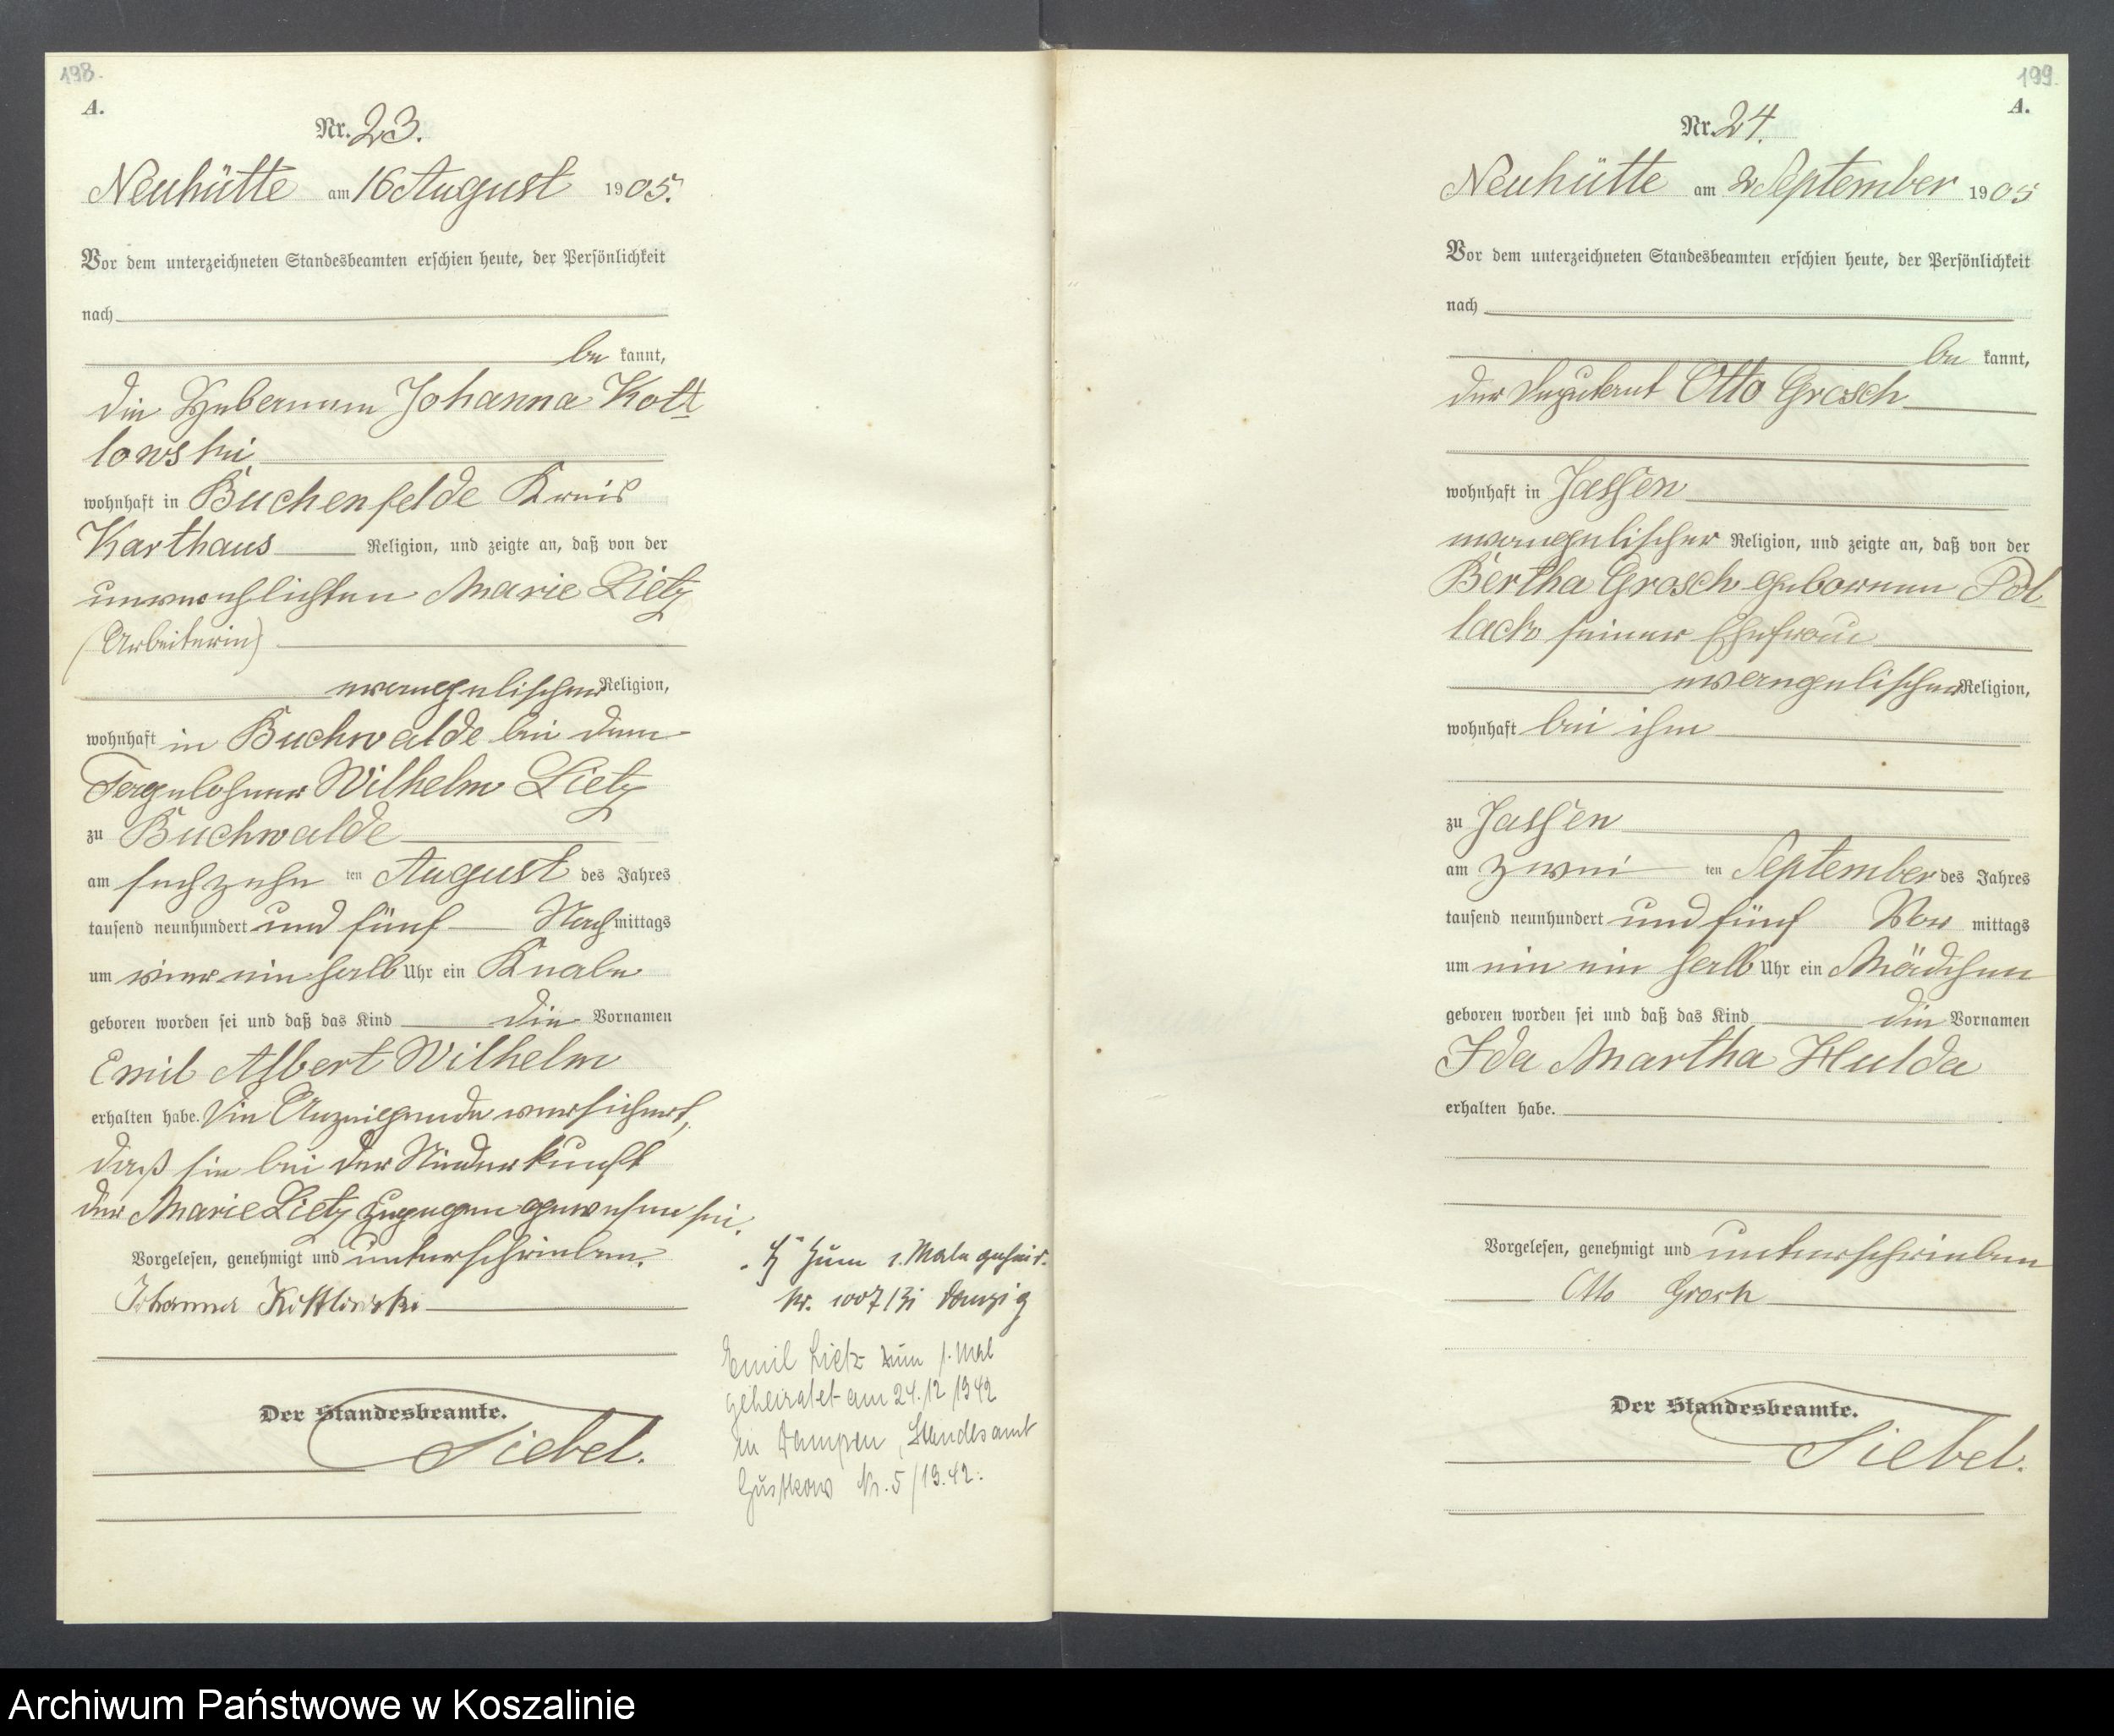 198.
A.
Nr. 23.
Neuhütte am 16 August 1905.
Vor dem unterzeichneten Standesbeamten erschien heute, der Persönlichkeit
nach
be kannt,
die Hebamme Johanna Kott
lowski
wohnhaft in Buchenfelde Kreis
Karthaus Religion, und zeigte an, daß von der
unverehlichten Marie Lietz
(Arbeiterin)
evangelischer Religion,
wohnhaft in Buchwalde bei dem
Tagelöhner Wilhelm Lietz
zu Buchwalde
am sechzehn ten August des Jahres
tausend neunhundert und fünf Nach mittags
um vier ein halb Uhr ein Knabe
geboren worden sei und daß das Kind die Vornamen
Emil Albert Wilhelm
erhalten habe. Die Anzeigende versichert,
daß sie bei der Niederkunft
der Marie Lietz zugegen gewesen sei.
Vorgelesen, genehmigt und unterschrieben.
Johanna Kottlowski
Der Standesbeamte.
Siebel.
zum 1. Male geheir.
Nr. 1007/31 Danzig
Emil Lietz zum 1. Mal
geheiratet am 24.12.1942
in Dampen, Standesamt
Gustkow Nr. 5/1942.
199.
A.
Nr. 24.
Neuhütte am 2 September 1905
Vor dem unterzeichneten Standesbeamten erschien heute, der Persönlichkeit
nach
be kannt,
der Deputant Otto Grosch
wohnhaft in Jassen
evangelischer Religion, und zeigte an, daß von der
Bertha Grosch geborenen Pol
lack seiner Ehefrau
evangelischer Religion,
wohnhaft bei ihm
zu Jassen
am zwei ten September des Jahres
tausend neunhundert und fünf Vor mittags
um ein ein halb Uhr ein Mädchen
geboren worden sei und daß das Kind die Vornamen
Ida Martha Hulda
erhalten habe.
Vorgelesen, genehmigt und unterschrieben
Otto Grosch
Der Standesbeamte.
Siebel.
Archiwum Państwowe w Koszalinie